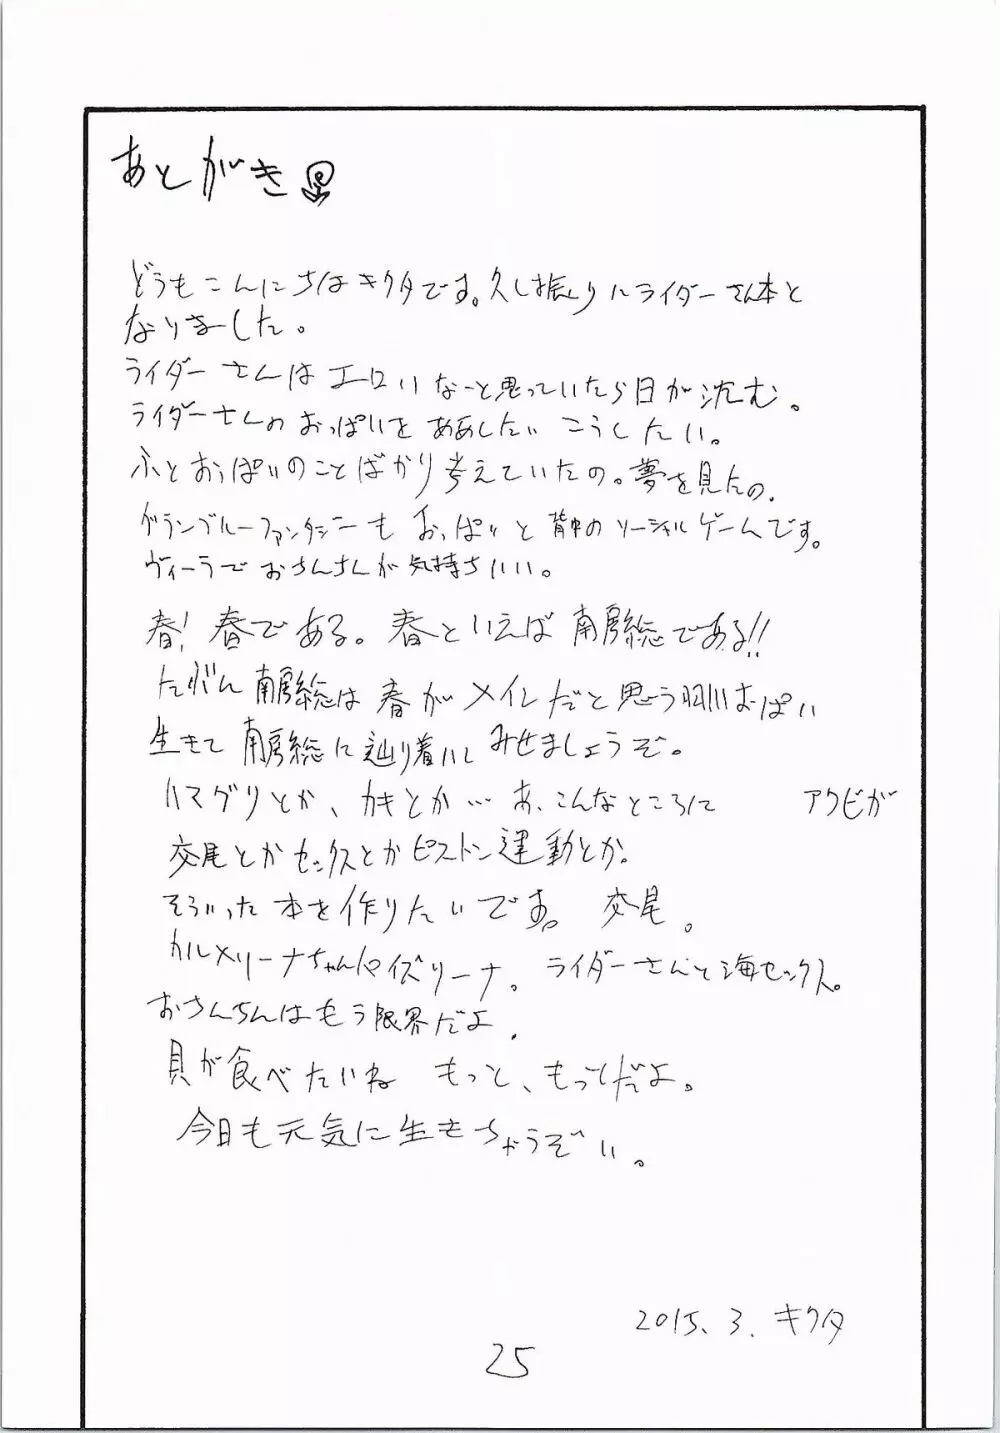 あとがき
どうもこんにちはキクタです。久し振りにライダーさん本と
なりました。
ライダーさんはエロいなーと思っていたら日が沈む。
ライダーさんのおっぱいをああしたいこうしたい。
ふとおっぱいのことばかり考えていたの。夢を見たの.
グランブルーファンタジーもおっぱいと背中のソーシャルゲームです。
ヴィーラでおちんちんが気持ちいい。
春!春である。春といえば南房総である!!
たぶん南房総は春がメインだと思う おっぱい
生きて南房総に辿り着いてみせましょうぞ。
ハマグリとか、カキとか…あ、こんなところに アワビが
交尾とかセックスとかピストン運動とか。
そういった本を作りたいです。交尾。
カルメリーナちゃんパイズリーナ。ライダーさんと海セックス。
おちんちんはもう限界だよ.
貝が食べたいね もっと、もっとだよ。
今日も元気に生きちゃうぞい。
2015.3.キクタ
25